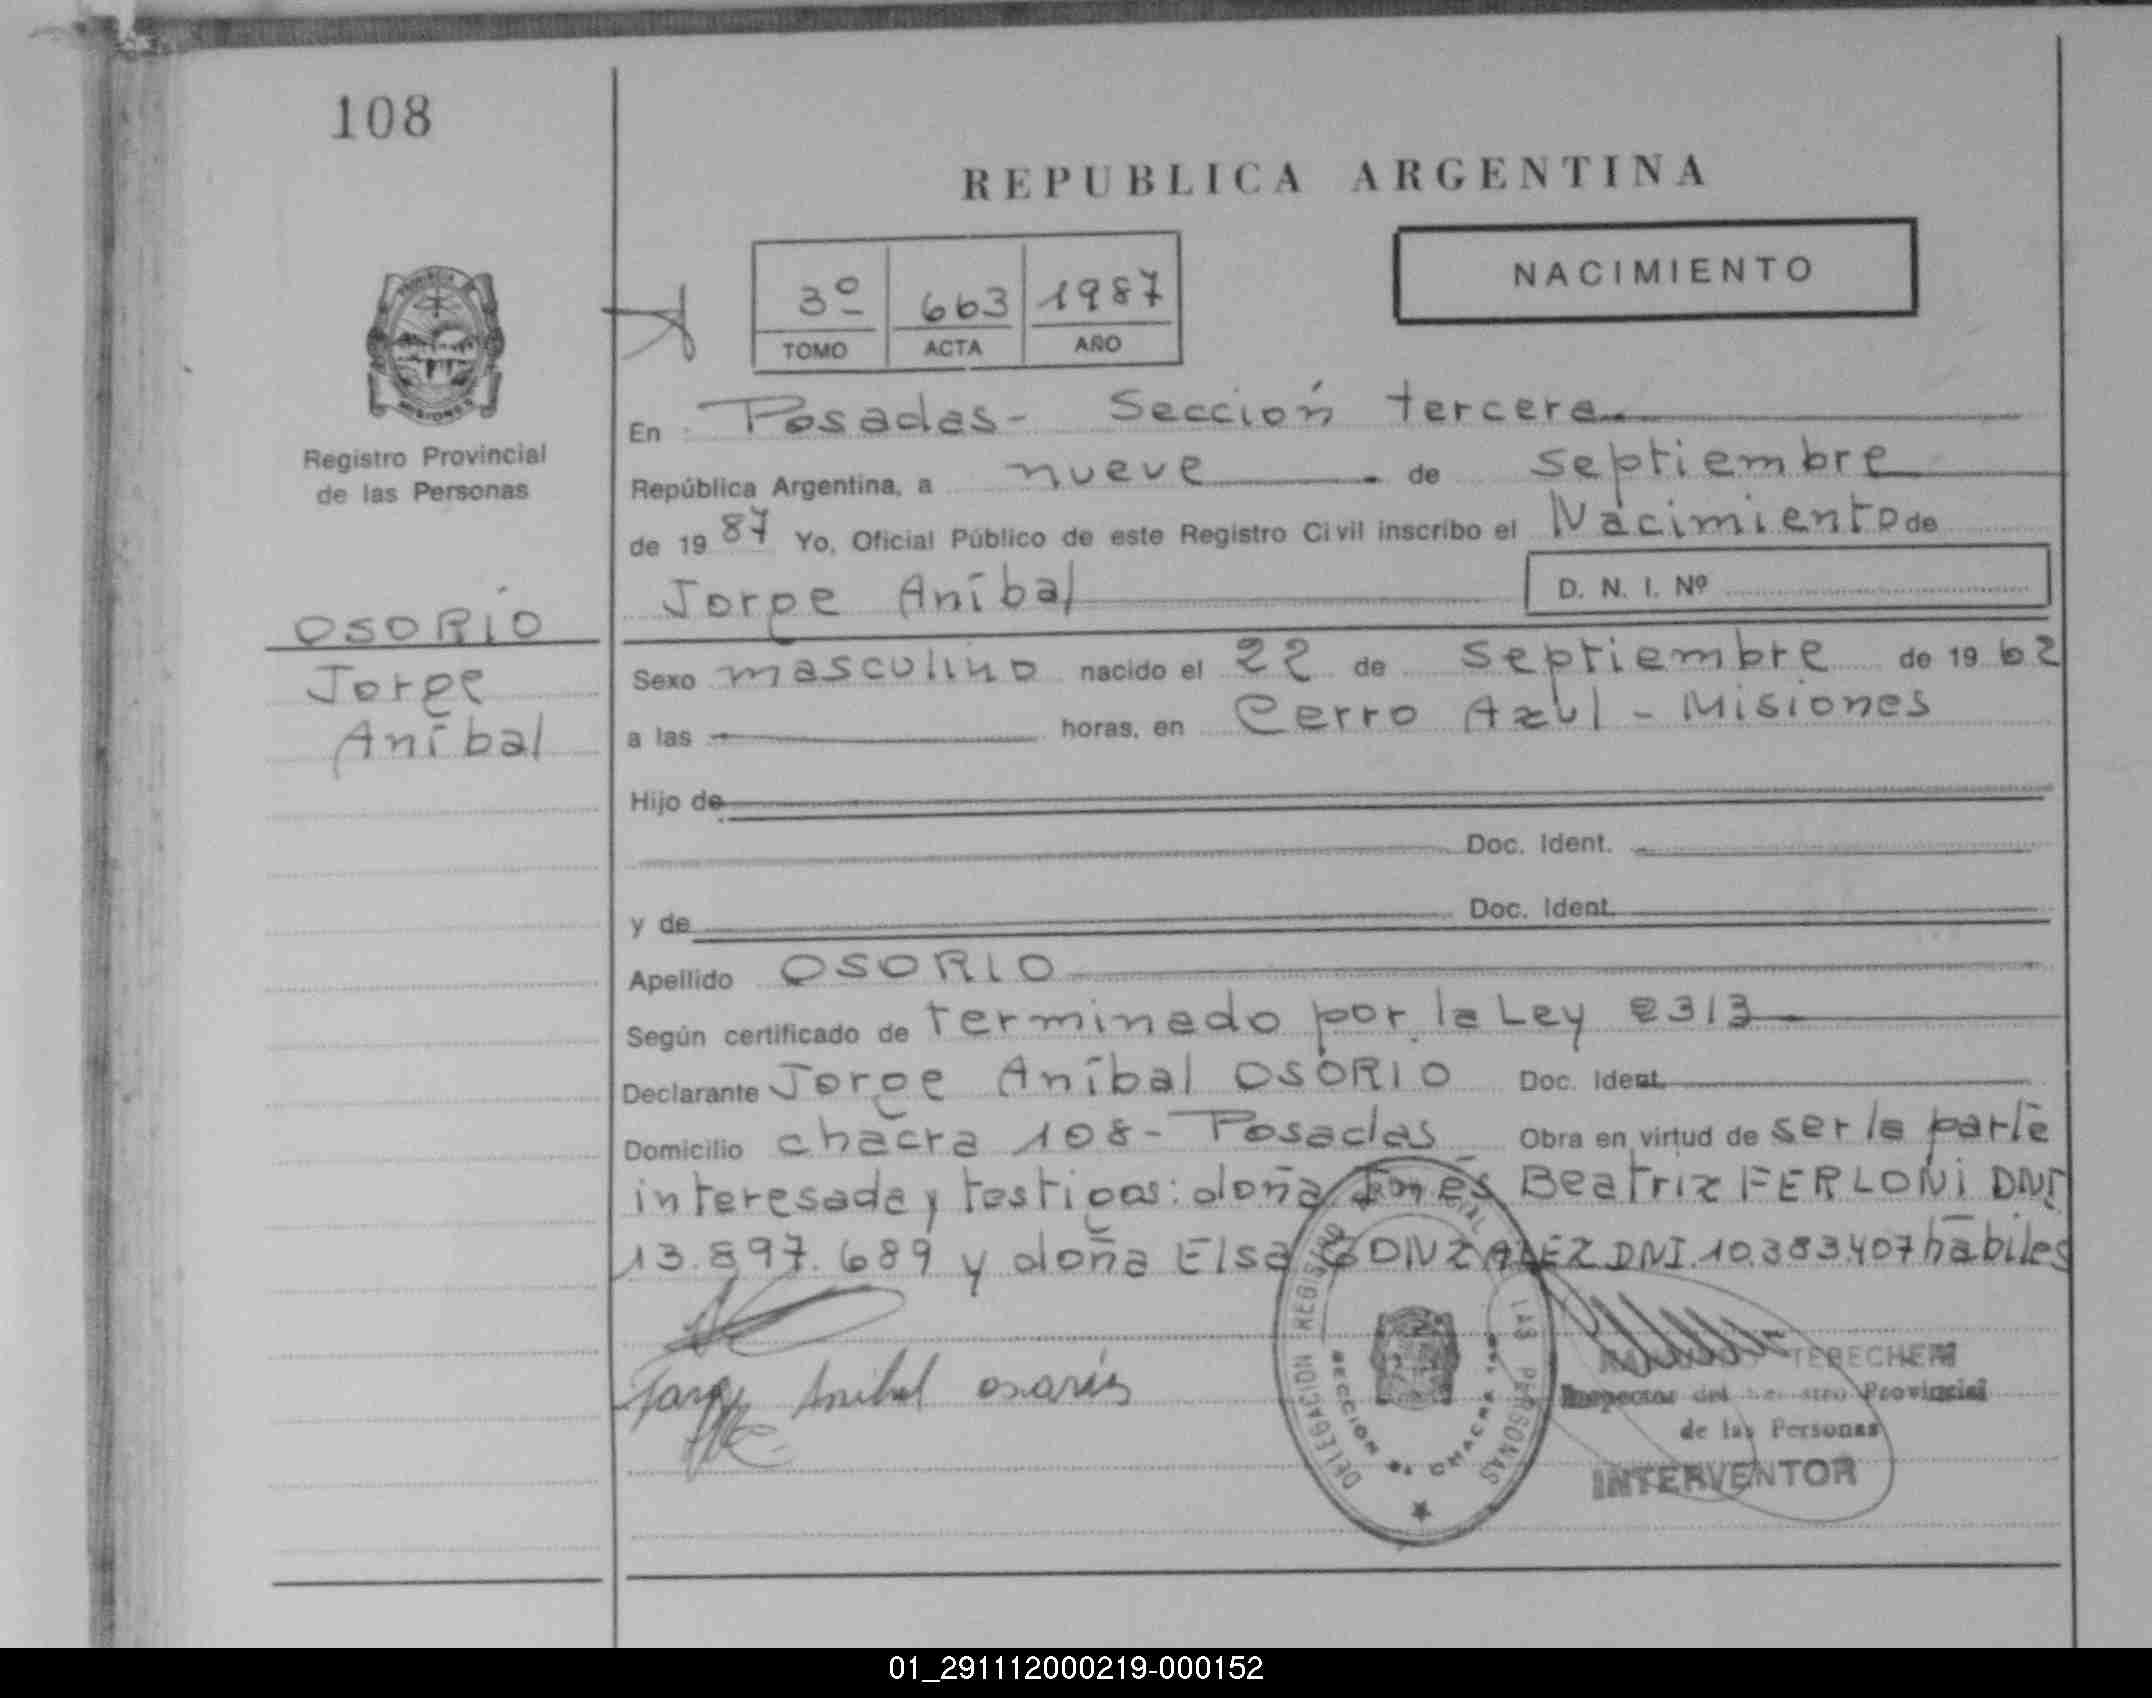 108
REPUBLICA ARGENTINA
NACIMIENTO
3º 663 1987
TOMO ACTA AÑO
PROVINCIA
MISIONES
Registro Provincial
de las Personas
OSORIO
Jorge
Aníbal
En Posadas - Sección tercera
República Argentina, a nueve de septiembre
de 1987 Yo, Oficial Público de este Registro Civil inscribo el Nacimiento de
Jorge Aníbal D. N. I. Nº
Sexo masculino nacido el 22 de septiembre de 1962
a las horas, en Cerro Azul - Misiones
Hijo de
Doc. Ident.
y de Doc. Ident.
Apellido OSORIO
Según certificado de terminado por la Ley 2313
Declarante Jorge Aníbal OSORIO Doc. Ident.
Domicilio chacra 108 - Posadas Obra en virtud de ser la parte
interesada y testigos: doña Inés Beatriz FERLONI DNI
13.897.689 y doña Elsa GONZALEZ DNI. 10.383.407 hábiles
Jorge Anibal osorio
DELEGACION REGISTRO PROVINCIAL LAS PERSONAS
SECCION CHACRA
TEBECHERI
Inspector del Registro Provincial
de las Personas
INTERVENTOR
01_291112000219-000152